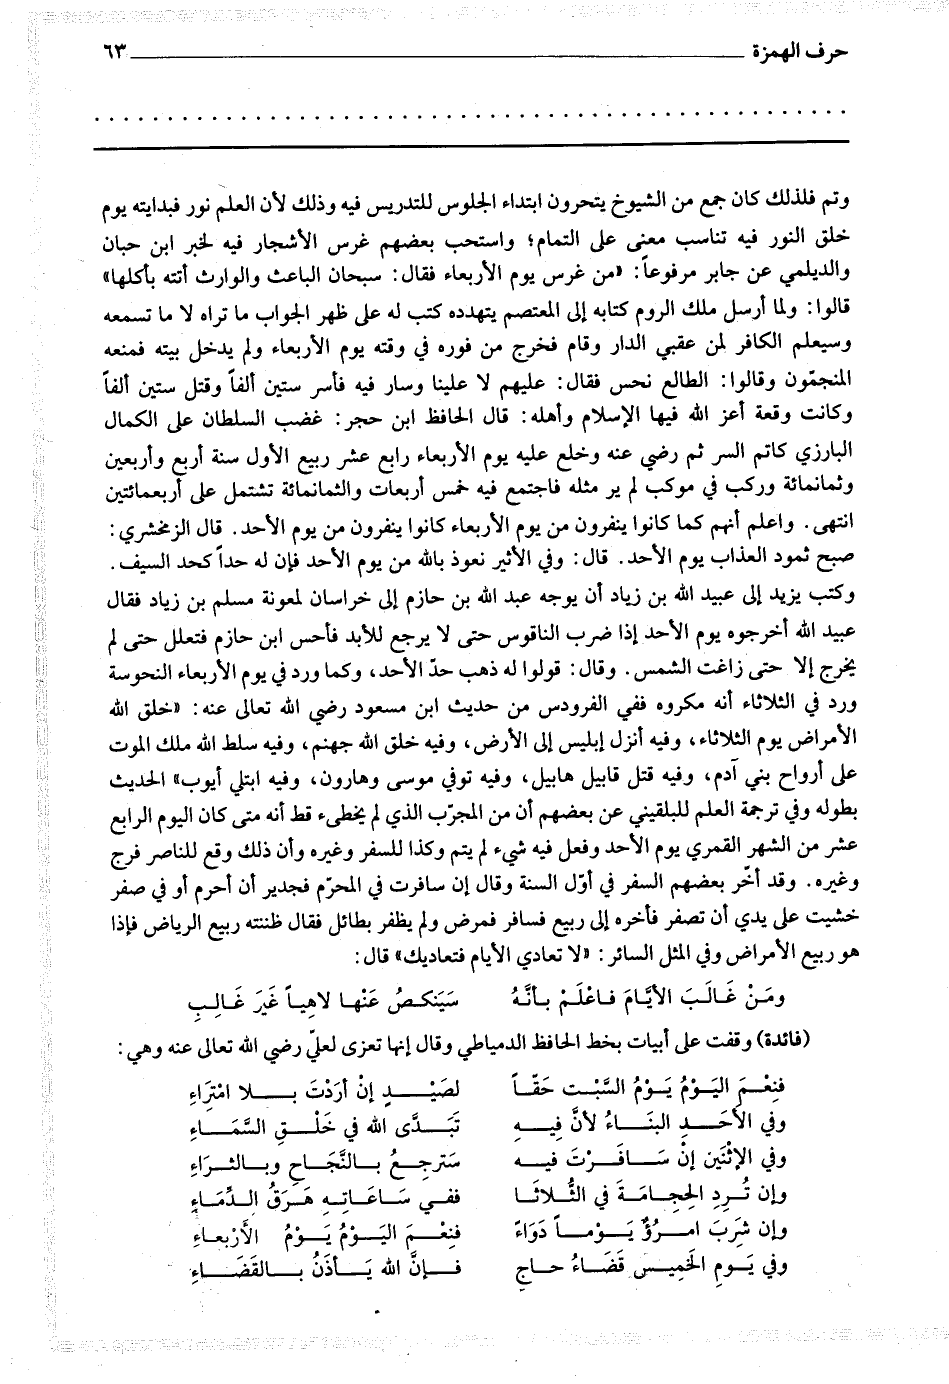 حرف الهمزة ٦٣
وتم فلذلك كان جمع من الشيوخ يتحرون ابتداء الجلوس للتدريس فيه وذلك لأن العلم نور فبدايته يوم
خلق النور فيه تناسب معنى على التمام؛ واستحب بعضهم غرس الأشجار فيه لخبر ابن حبان
والديلمي عن جابر مرفوعاً: «من غرس يوم الأربعاء فقال: سبحان الباعث والوارث أتته بأكلها»
قالوا: ولما أرسل ملك الروم كتابه إلى المعتصم يتهدده كتب له على ظهر الجواب ما تراه لا ما تسمعه
وسيعلم الكافر لمن عقبي الدار وقام فخرج من فوره في وقته يوم الأربعاء ولم يدخل بيته فمنعه
المنجمّون وقالوا: الطالع نحس فقال: عليهم لا علينا وسار فيه فأسر ستين ألفاً وقتل ستين ألفاً
وكانت وقعة أعز الله فيها الإسلام وأهله: قال الحافظ ابن حجر: غضب السلطان على الكمال
البارزي كاتم السر ثم رضي عنه وخلع عليه يوم الأربعاء رابع عشر ربيع الأول سنة أربع وأربعين
وثمانمائة وركب في موكب لم ير مثله فاجتمع فيه خمس أربعات والثمانمائة تشتمل على أربعمائتين
انتهى. واعلم أنهم كما كانوا ينفرون من يوم الأربعاء كانوا ينفرون من يوم الأحد. قال الزمخشري:
صبح ثمود العذاب يوم الأحد. قال: وفي الأثير نعوذ بالله من يوم الأحد فإن له حداً كحد السيف.
وكتب يزيد إلى عبيد الله بن زياد أن يوجه عبد الله بن حازم إلى خراسان لمعونة مسلم بن زياد فقال
عبيد الله أخرجوه يوم الأحد إذا ضرب الناقوس حتى لا يرجع للأبد فأحس ابن حازم فتعلل حتى لم
يخرج إلا حتى زاغت الشمس. وقال: قولوا له ذهب حدّ الأحد، وكما ورد في يوم الأربعاء النحوسة
ورد في الثلاثاء أنه مكروه ففي الفرودس من حديث ابن مسعود رضي الله تعالى عنه: «خلق الله
الأمراض يوم الثلاثاء، وفيه أنزل إبليس إلى الأرض، وفيه خلق الله جهنم، وفيه سلط الله ملك الموت
على أرواح بني آدم، وفيه قتل قابيل هابيل، وفيه توفي موسى وهارون، وفيه ابتلي أيوب» الحديث
بطوله وفي ترجمة العلم للبلقيني عن بعضهم أن من المجرّب الذي لم يخطىء قط أنه متى كان اليوم الرابع
عشر من الشهر القمري يوم الأحد وفعل فيه شيء لم يتم وكذا للسفر وغيره وأن ذلك وقع للناصر فرج
وغيره. وقد أخّر بعضهم السفر في أوّل السنة وقال إن سافرت في المحرّم فجدير أن أحرم أو في صفر
خشيت على يدي أن تصفر فأخره إلى ربيع فسافر فمرض ولم يظفر بطائل فقال ظننته ربيع الرياض فإذا
هو ربيع الأمراض وفي المثل السائر: «لا تعادي الأيام فتعاديك» قال:
ومَنْ غَالَبَ الأيَّامَ فاعْلَمْ بأنَّهُ سَيَنكصُ عَنْها لاهِياً غَيَر غَالِبِ
(فائدة) وقفت على أبيات بخط الحافظ الدمياطي وقال إنها تعزى لعليّ رضي الله تعالى عنه وهي:
فنِعْمَ اليَوْمُ يَوْمُ السَّبْت حَقّاً لصَيْدٍ إنْ أرَدْتَ بلا امْتِرَاءِ
وفي الأحَدِ البنَاءُ لأنَّ فِيهِ تَبَدَّى الله في خَلْقِ السَّمَاءِ
وفي الإثْنَينِ إنْ سَافَرْتَ فيه سَترجعُ بالنَّجَاحِ وبالثرَاءِ
وإن تُرِدِ الحِجامَةَ في الثُّلاثَا ففي سَاعَاتِهِ هَرَقُ الدِّمَاءِ
وإن شرِبَ امرُؤٌ يَوْماً دَوَاءً فنِعْمَ اليَوْمُ يَوْمُ الأَرْبعاءِ
وفي يَومِ الخَمِيسِ قضَاءُ حاجٍ فإنَّ الله يَأذَنُ بالقَضَاءِ